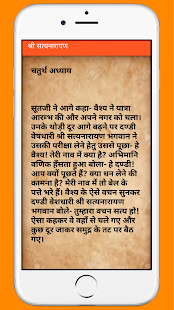 श्री सत्यनारायण
चतुर्थ अध्याय
सूतजी ने आगे कहा- वैश्य ने यात्रा
आरम्भ की और अपने नगर को चला।
उनके थोड़ी दूर आगे बढ़ने पर दण्डी
वेशधारी श्री सत्यनारायण भगवान ने
उसकी परीक्षा लेने हेतु उससे पूछा- हे
वैश्य! तेरी नाव में क्या है? अभिमानि
वणिक हँसता हुआ बोला- हे दण्डी!
आप क्यों पूछते हैं? क्या धन लेने की
कामना है? मेरी नाव में तो बेल के
पत्ते भरे हैं। वैश्य के ऐसे वचन सुनकर
दण्डी वेशधारी श्री सत्यनारायण
भगवान बोले- तुम्हारा वचन सत्य हो!
ऐसा कहकर वे वहाँ से चले गए और
कुछ दूर जाकर समुद्र के तट पर बैठ
गए।